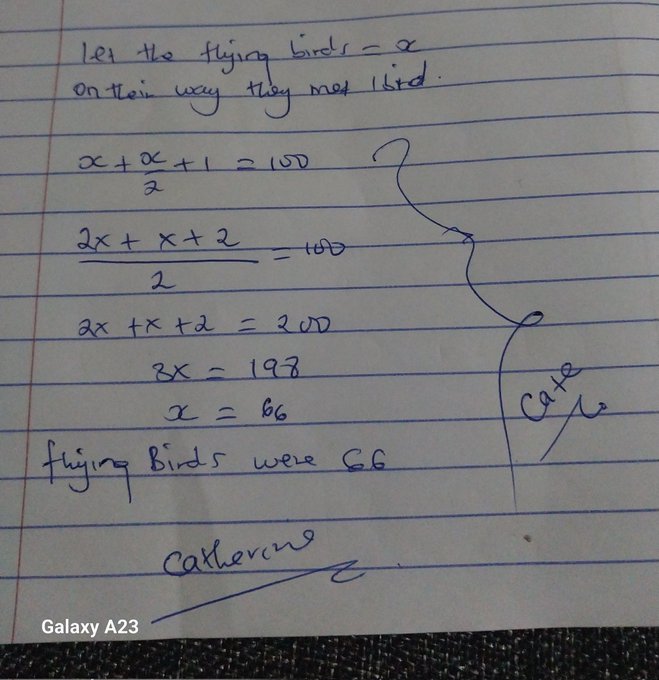 let the flying birds = x
On their way they met 1 bird.
x + x/2 + 1 = 100
2x + x + 2 / 2 = 100
2x + x + 2 = 200
3x = 198
x = 66
flying Birds were 66
Cate
Catherine
Galaxy A23